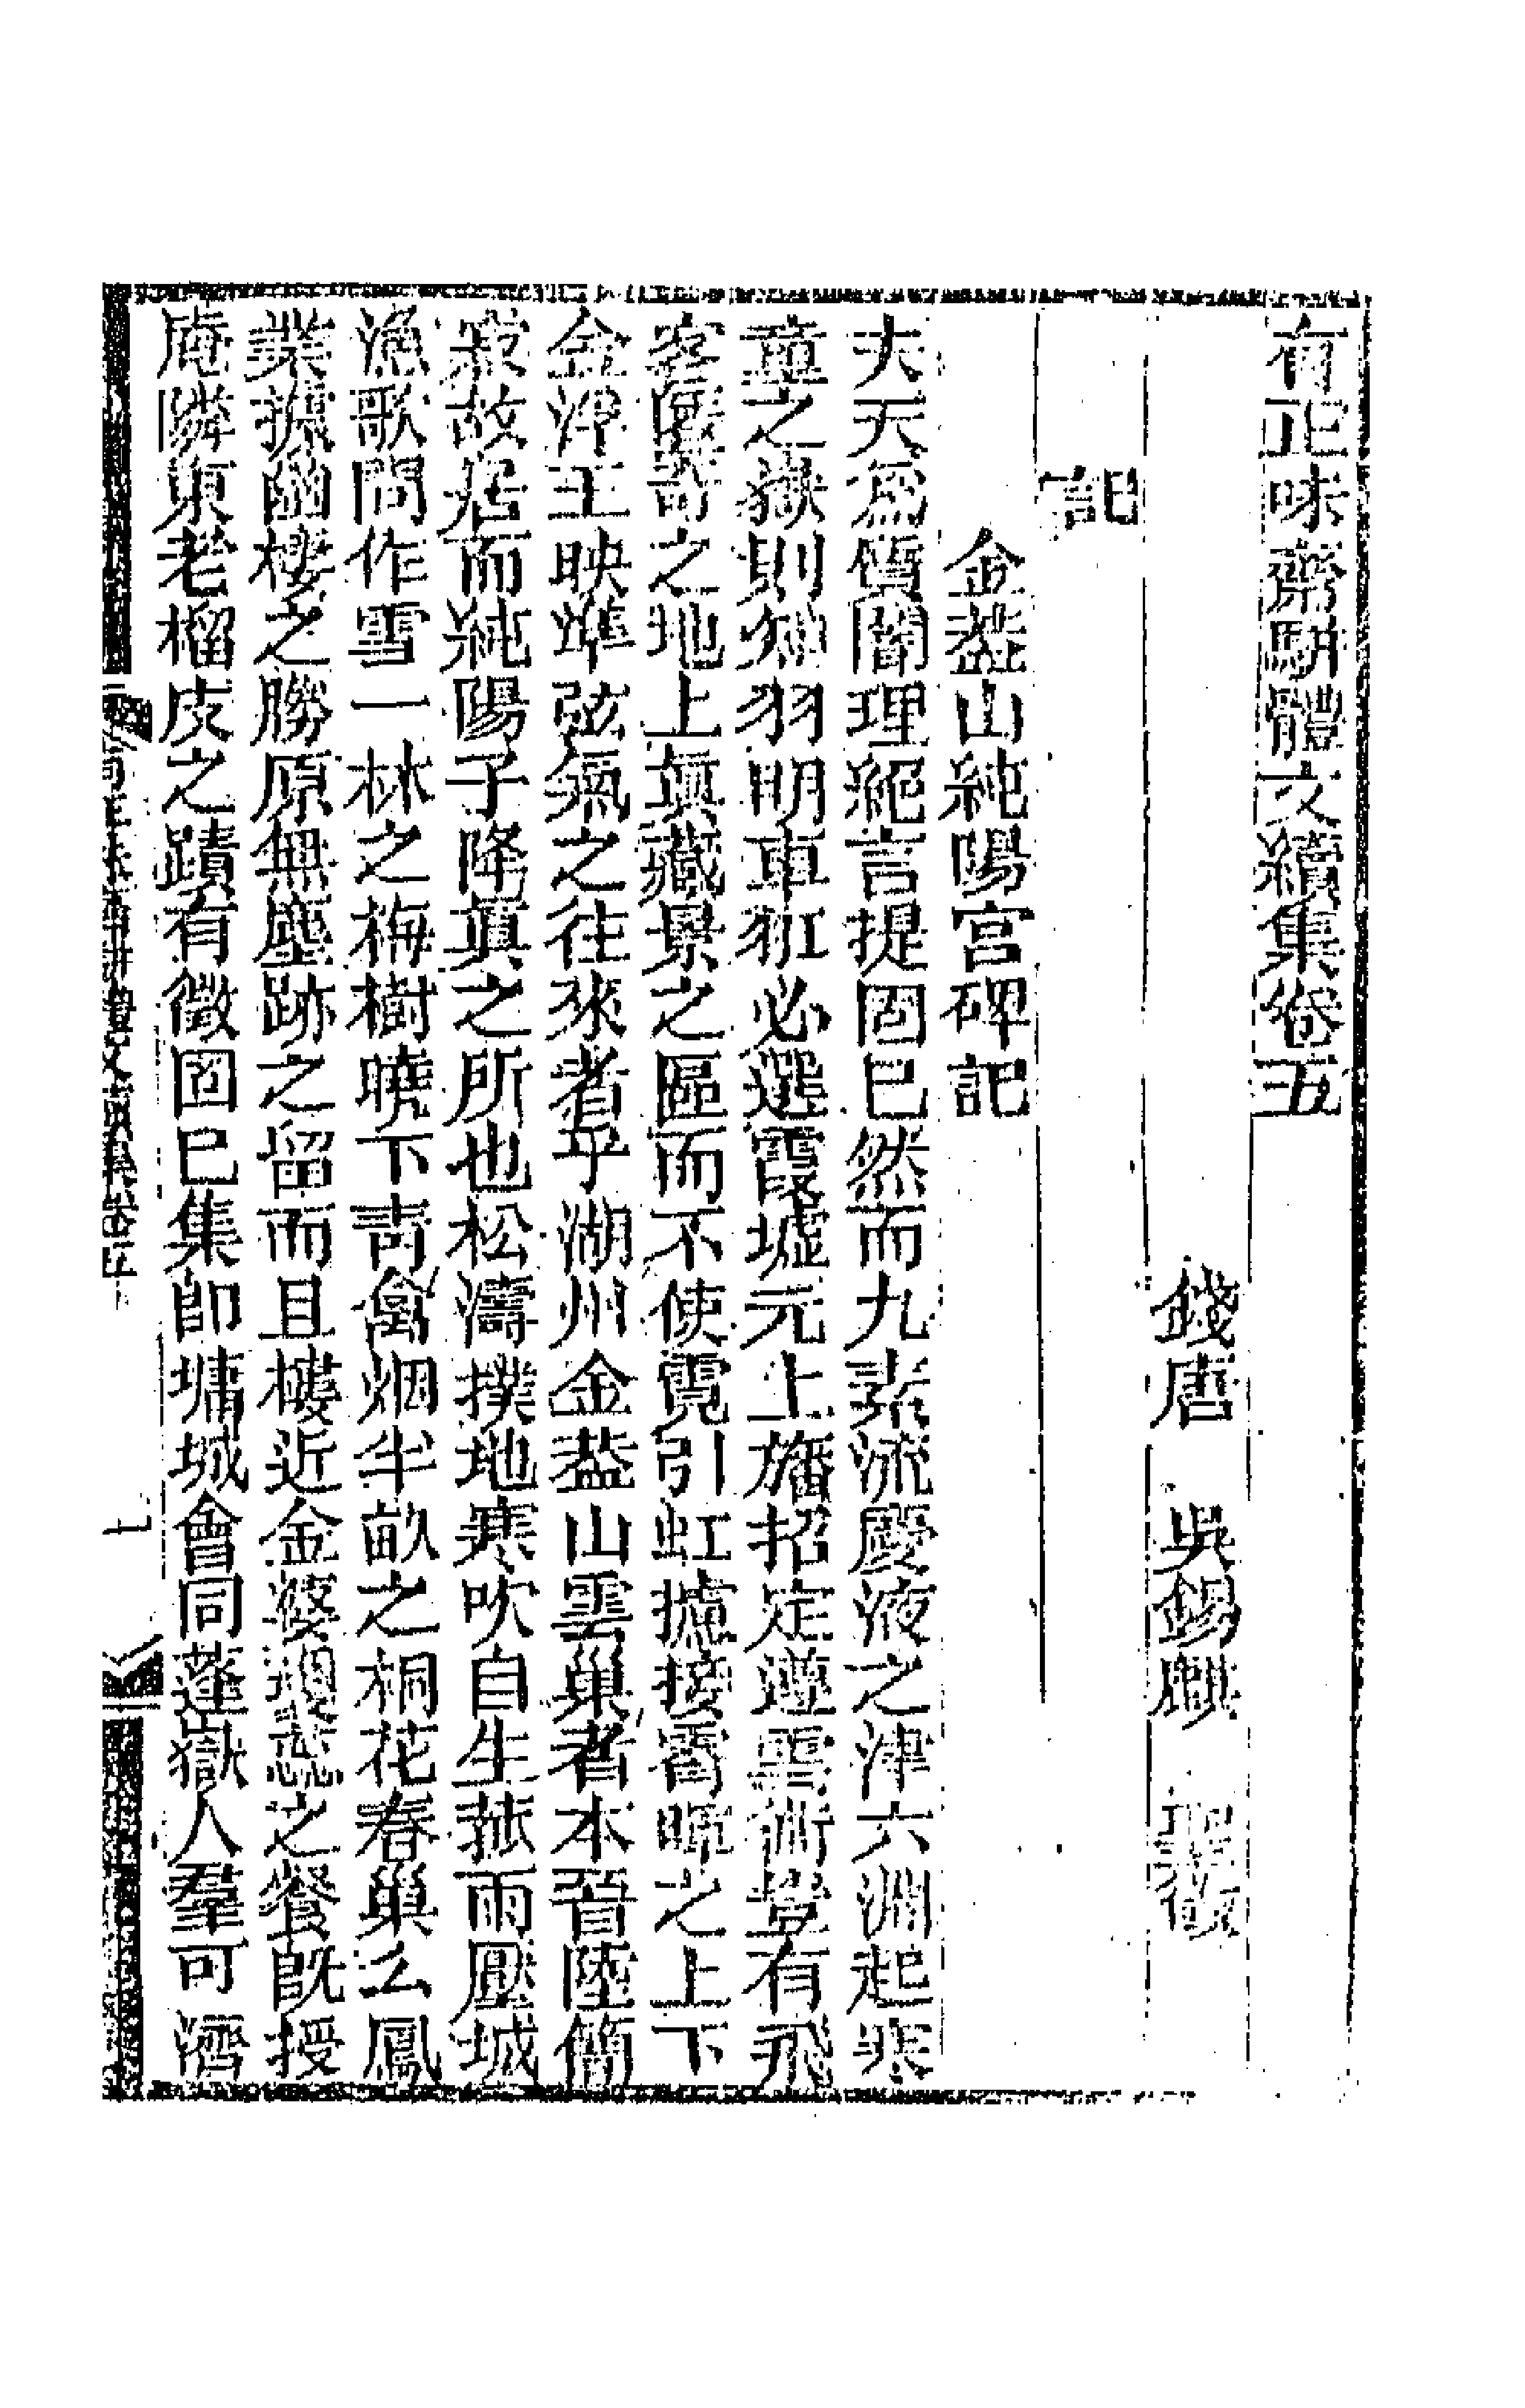 有正味齋駢體文續集卷五
錢唐 吳錫麒 聖徵
記
金蓋山純陽宮碑記
夫天為質闇理絕言提固已然而九素流慶液之津六淵起寒
童之嶽則神羽明車羾必選霞墟元上旛招定遵雲術豈有飛
客隱奇之地上真藏景之區而不使霓引虹攄接霄暉之上下
金浮玉映準弦氣之往來者乎湖州金蓋山雲巢者本晉陸簡
寂故居而純陽子降眞之所也松濤撲地寒吹自生菰雨壓城
漁歌問作雪一林之梅樹曉下青禽烟半畝之桐花春巢么鳳
業擴幽棲之勝原無塵跡之留而且樓近金婆蕊之餐旣授
庵隣東老榴皮之蹟有徵固已集卽墉城會同蓬嶽人羣可濟
有正味齋駢體文續集卷五
一